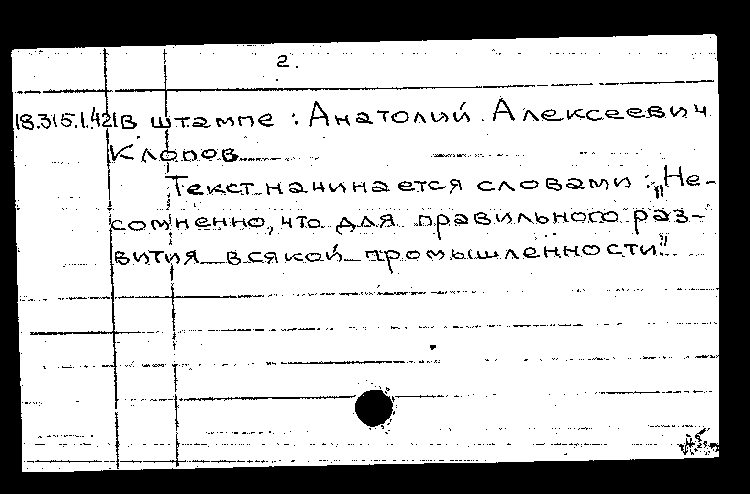 2.
18.315.1.421 в штампе: Анатолий Алексеевич
Клопов
Текст начинается словами: „Не-
сомненно, что для правильного раз-
вития всякой промышленности"